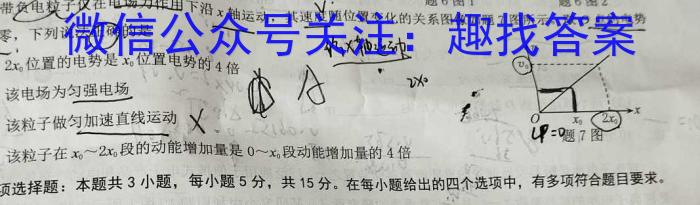 带负电粒子仅在电场力作用下沿x轴运动，其速度随位置变化的关系图
题6图1
题6图2
零，下列
微信公众号关注：趣找答案
2x₀位置的电势是x₀位置电势的4倍
该电场为匀强电场
该粒子做匀加速直线运动
该粒子在x₀～2x₀段的动能增加量是0～x₀段动能增加量的4倍
2x₀
v₀
x₀
2x₀
x
φ=0
题7图
项选择题：本题共3小题，每小题5分，共15分。在每小题给出的四个选项中，有多项符合题目要求。